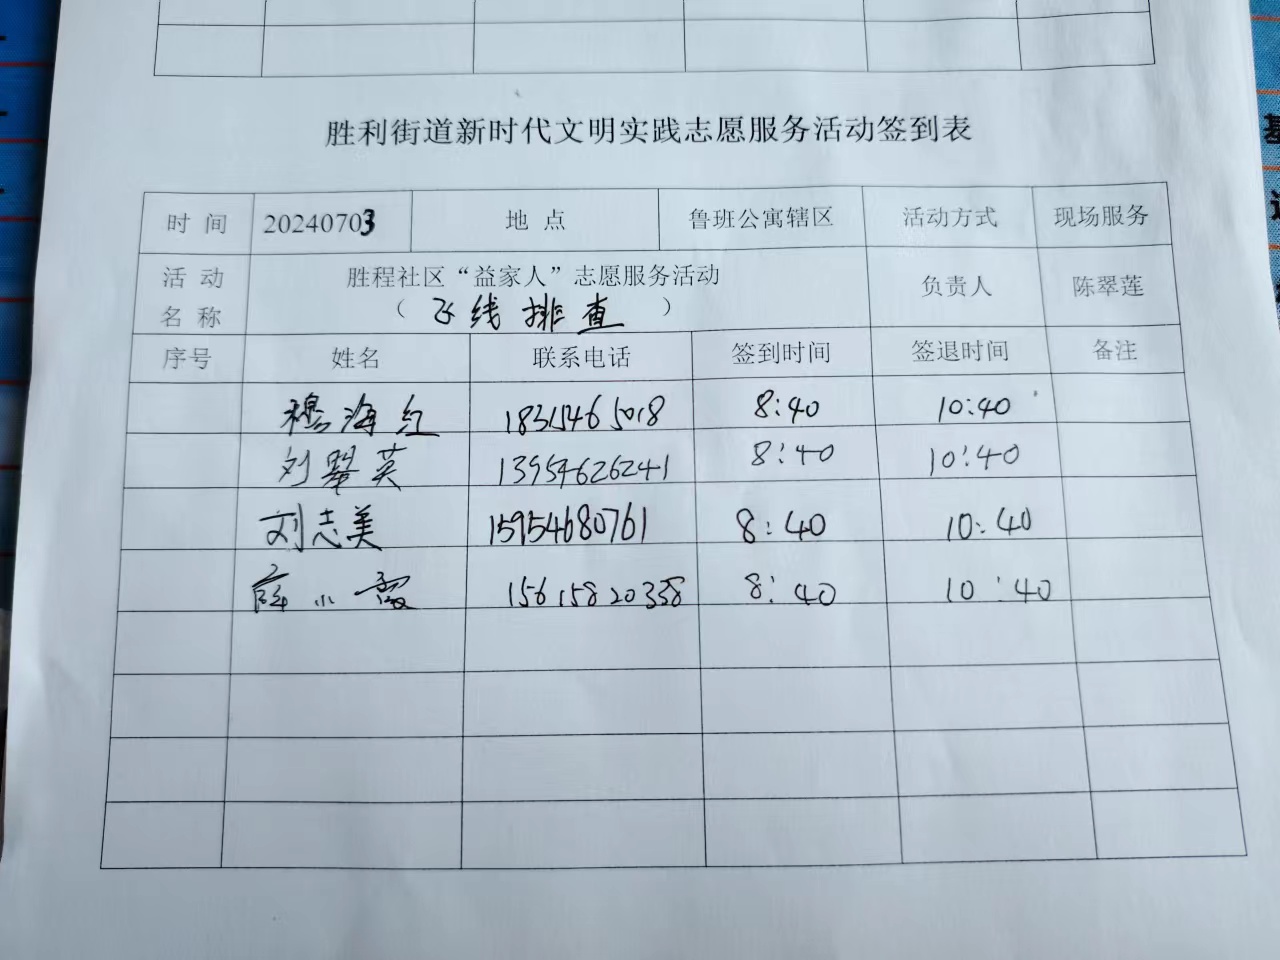 胜利街道新时代文明实践志愿服务活动签到表
时 间 20240703 地 点 鲁班公寓辖区 活动方式 现场服务
活 动 名 称 胜程社区“益家人”志愿服务活动 负责人 陈翠莲
（飞线排查）
序号 姓名 联系电话 签到时间 签退时间 备注
穆海红 18315465018 8:40 10:40
刘翠英 13954626241 8:40 10:40
刘志美 15954680761 8:40 10:40
薛小霞 15615820358 8:40 10:40